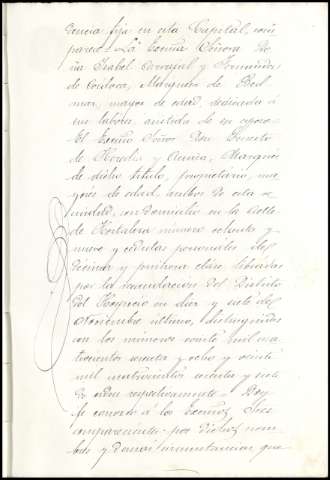 dencia fija en esta Capital, com
parece = La Excma Señora Do
ña Isabel Carvajal y Fernandez
de Cordova, Marquesa de Bed
mar, mayor de edad, dedicada á
sus labores, asistida de su esposo
El Excmo Señor Don Ernesto
de Heredia y Acuña, Marqués
de dicho título, propietario, ma
yores de edad, ambos de esta ve
cindad, con domicilio en la Calle
de Hortaleza número ochenta y
nueve y cédulas personales de
décima y primera clase, libradas
por la recaudacion del Distrito
del Hospicio en diez y siete de
Noviembre último, distinguidas
con los números veinte mil cua
trocientos sesenta y ocho y veinte
mil cuatrocientos sesenta y siete
de orden respectivamente = Doy
fé conocer á los Excmos Sres
comparecientes por dichos nom
bres y demas circunstancias que